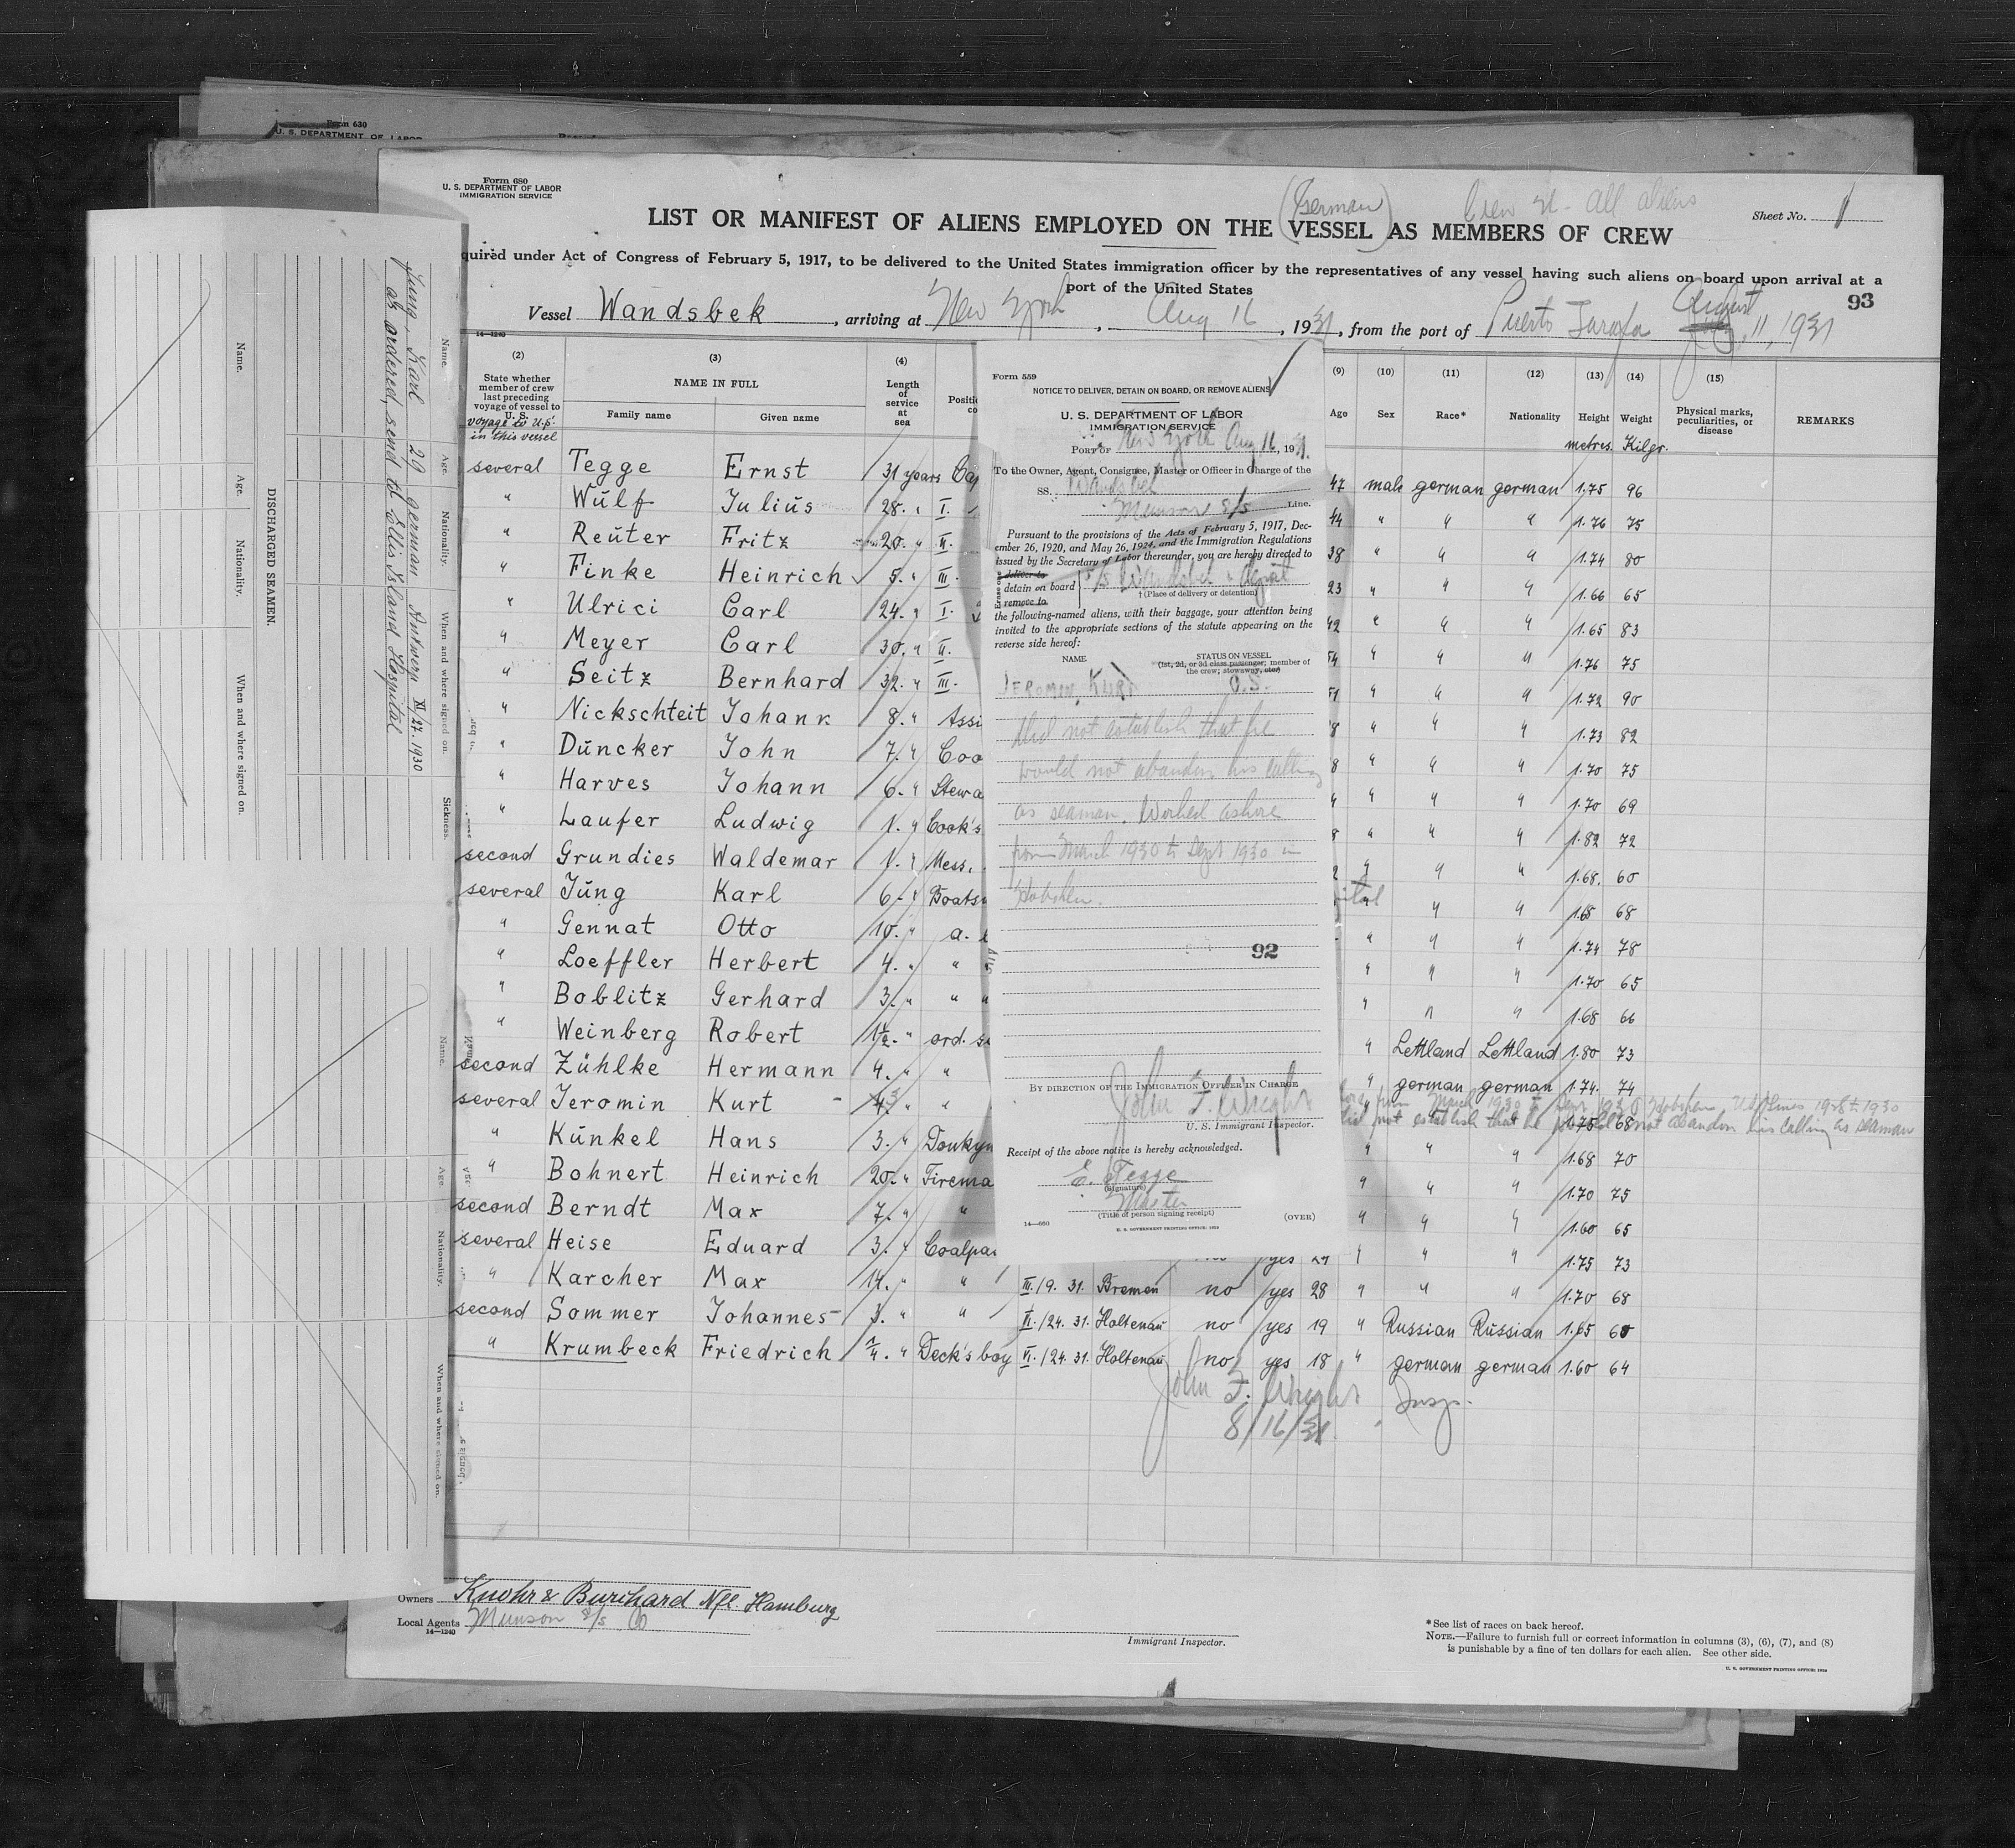 Form 630
U. S. DEPARTMENT OF LABOR
Form 680
U. S. DEPARTMENT OF LABOR
IMMIGRATION SERVICE
(German)
All Aliens
Sheet No. 1
LIST OR MANIFEST OF ALIENS EMPLOYED ON THE VESSEL AS MEMBERS OF CREW
quired under Act of Congress of February 5, 1917, to be delivered to the United States immigration officer by the representatives of any vessel having such aliens on board upon arrival at a
port of the United States
93
Vessel Wandsbek, arriving at New York, Aug 16, 1931, from the port of Puerto August 11, 1931
14—1240
(2) (3) (4) (9) (10) (11) (12) (13) (14) (15)
State whether member of crew last preceding voyage of vessel to U. S.
voyage to U.S. in this vessel
NAME IN FULL
Family name Given name
Length of service at sea
Age Sex Race* Nationality Height Weight Physical marks, peculiarities, or disease REMARKS
metres. Kilgr.
several Tegge Ernst 31 years Cap 47 male german german 1.75 96
" Wulf Julius 28. " I. 44 " " " 1.76 75
" Reuter Fritz 20. " II. 38 " " " 1.74 80
" Finke Heinrich 5. " III. 23 " " " 1.66 65
" Ulrici Carl 24. " I. 42 " " " 1.65 83
" Meyer Carl 30. " II. 54 " " " 1.76 75
" Seitz Bernhard 32. " III. 51 " " " 1.72 90
" Nickschteit Johann 8. " Assi 8 " " " 1.73 82
" Duncker John 7. " Coo 8 " " " 1.70 75
" Harves Johann 6. " Stewa " " " 1.70 69
" Laufer Ludwig 1. " Cook's 8 " " " 1.82 72
second Grundies Waldemar 1. " Mess. 2 " " " 1.68. 60
several Jung Karl 6. " Boats " " 1.65 68
" Gennat Otto 10. " a. " " " 1.74 78
" Loeffler Herbert 4. " " " " " 1.70 65
" Boblitz Gerhard 3. " " " " " 1.68 66
" Weinberg Robert 1½. " ord. " Lettland Lettland 1.80 73
second Zühlke Hermann 4. " " " german german 1.74. 74
several Jeromin Kurt - " " 1.75 68
from March 1930 to 1930 Hoboken 1928 to 1930
did not establish that he would not abandon his calling as seaman
" Kunkel Hans 3. " Donkym " " " 1.68 70
" Bohnert Heinrich 20. " Firema " " " 1.70 75
second Berndt Max 7. " " " " " 1.60 65
several Heise Eduard 3. " Coalpa yes " " " 1.75 73
" Karcher Max 14. " " III./9. 31. Bremen no yes 28 " " " 1.70 68
second Sommer Johannes - 3. " " VI./24. 31. Holtenau no yes 19 " Russian Russian 1.65 60
" Krumbeck Friedrich ¼. " Deck's boy VI./24. 31. Holtenau no yes 18 " german german 1.60 64
John F. Wright Insp.
8/16/31
Owners Knohr & Burchard Nfl. Hamburg
Local Agents Munson S/S Co
14—1240
Immigrant Inspector.
*See list of races on back hereof.
NOTE.—Failure to furnish full or correct information in columns (3), (6), (7), and (8)
is punishable by a fine of ten dollars for each alien. See other side.
Form 559
NOTICE TO DELIVER, DETAIN ON BOARD, OR REMOVE ALIENS
U. S. DEPARTMENT OF LABOR
IMMIGRATION SERVICE
PORT OF New York Aug 16, 1931.
To the Owner, Agent, Consignee, Master or Officer in Charge of the
SS. Wandsbek
Munson S/S Line.
Pursuant to the provisions of the Acts of February 5, 1917, Dec-
ember 26, 1920, and May 26, 1924, and the Immigration Regulations
issued by the Secretary of Labor thereunder, you are hereby directed to
Erase one
deliver to
detain on board
remove to
S/S Wandsbek
† (Place of delivery or detention)
the following-named aliens, with their baggage, your attention being
invited to the appropriate sections of the statute appearing on the
reverse side hereof:
NAME
STATUS ON VESSEL
(1st, 2d, or 3d class passenger; member of
the crew; stowaway, etc.)
JEROMIN, KURT O.S.
Did not establish that he
would not abandon his calling
as seaman. Worked ashore
from March 1930 to Sept 1930 in
Hoboken.
92
BY DIRECTION OF THE IMMIGRATION OFFICER IN CHARGE
John F. Wright
U. S. Immigrant Inspector.
Receipt of the above notice is hereby acknowledged.
E. Tegge
(Signature)
Master
(Title of person signing receipt)
14—660
(OVER)
DISCHARGED SEAMEN.
Name. Age. Nationality. When and where signed on.
Name. Age. Nationality. When and where signed on. Sickness.
Jung, Karl 29 German Antwerp XI/27. 1930
as ordered, send to Ellis Island Hospital
Name. Age. Nationality. When and where signed on.